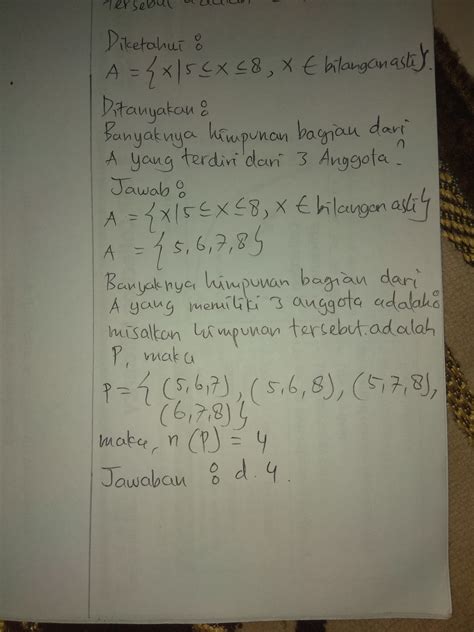 tersebut adalah
Diketahui :
A = { x | 5 ≤ x ≤ 8 , x ∈ bilangan asli}.
Ditanyakan :
Banyaknya himpunan bagian dari
A yang terdiri dari 3 Anggota ?
Jawab :
A = { x | 5 ≤ x ≤ 8, x ∈ bilangan asli}
A = { 5, 6, 7, 8 }
Banyaknya himpunan bagian dari
A yang memiliki 3 anggota adalah :
misalkan himpunan tersebut adalah
P, maka
P = { (5,6,7) , (5,6,8), (5,7,8),
(6,7,8) }
maka, n (P) = 4
Jawaban : d. 4.